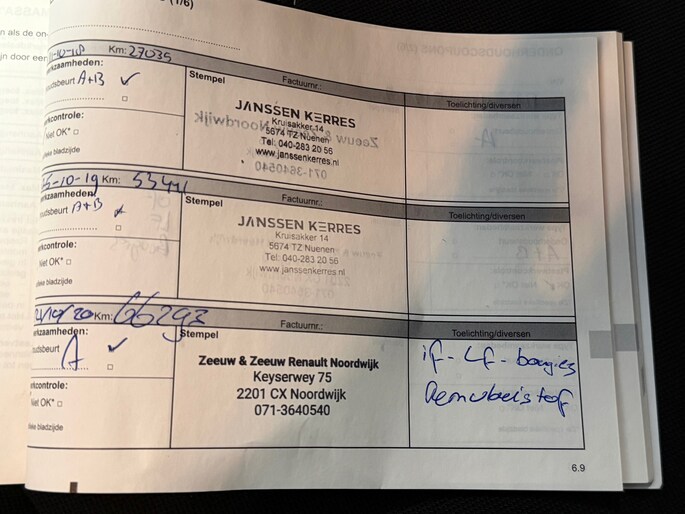 (1/6)
n als de on
jn door een
-10-18 Km: 27035
rkzaamheden:
oudsbeurt A+B ✓
Stempel
Factuurnr.:
Toelichting/diversen
JANSSEN KERRES
Kruisakker 14
5674 TZ Nuenen
Tel: 040-283 20 56
www.janssenkerres.nl
rkcontrole:
Niet OK*
elke bladzijde
-10-19 Km: 53441
rkzaamheden:
oudsbeurt A+B
Stempel
Toelichting/diversen
JANSSEN KERRES
Kruisakker 14
5674 TZ Nuenen
Tel: 040-283 20 56
www.janssenkerres.nl
rkcontrole:
Niet OK*
ieke bladzijde
20 Km: 66293
rkzaamheden:
oudsbeurt A ✓
Stempel
Factuurnr.:
Toelichting/diversen
Zeeuw & Zeeuw Renault Noordwijk
Keyserweg 75
2201 CX Noordwijk
071-3640540
if - Lf - bougies
Remvloeistof
rkcontrole:
Niet OK*
ieke bladzijde
6.9